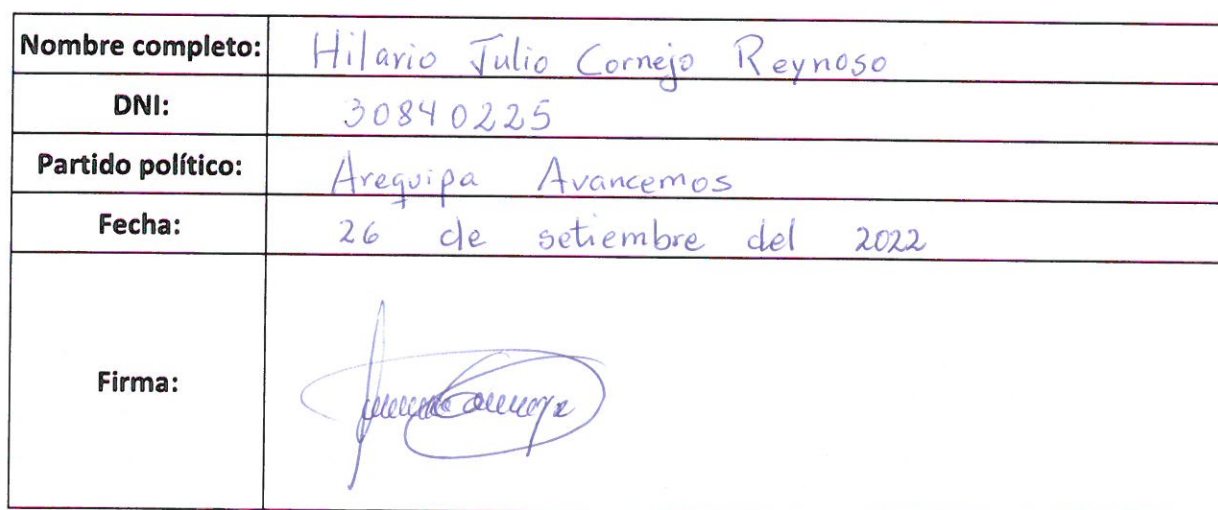 Nombre completo: Hilario Julio Cornejo Reynoso
DNI: 30840225
Partido político: Arequipa Avancemos
Fecha: 26 de setiembre del 2022
Firma: